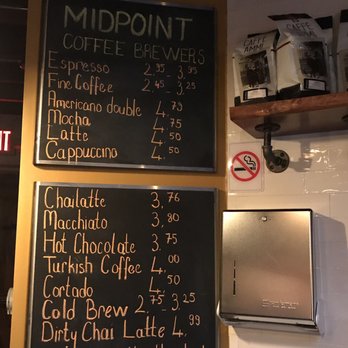 MIDPOINT
COFFEE BREWERS
Espresso 2.95 - 3.95
Fine Coffee 2.45 - 3.25
Americano double 4.75
Mocha 4.75
Latte 4.50
Cappuccino 4.50
Chailatte 3.76
Macchiato 3.80
Hot Chocolate 3.75
Turkish Coffee 4.00
Cortado 4.50
Cold Brew 2.75 - 3.25
Dirty Chai Latte 4.99